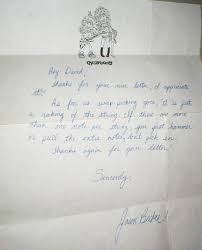 Hey David,
thanks for your nice letter, I appreciate
it.
As far as sweep picking goes, it is just
a raking of the string. If there are more
than one note per string you just hammer
or pull the extra notes, don't pick em.
thanks again for your letter,
Sincerely,
Jason Becker